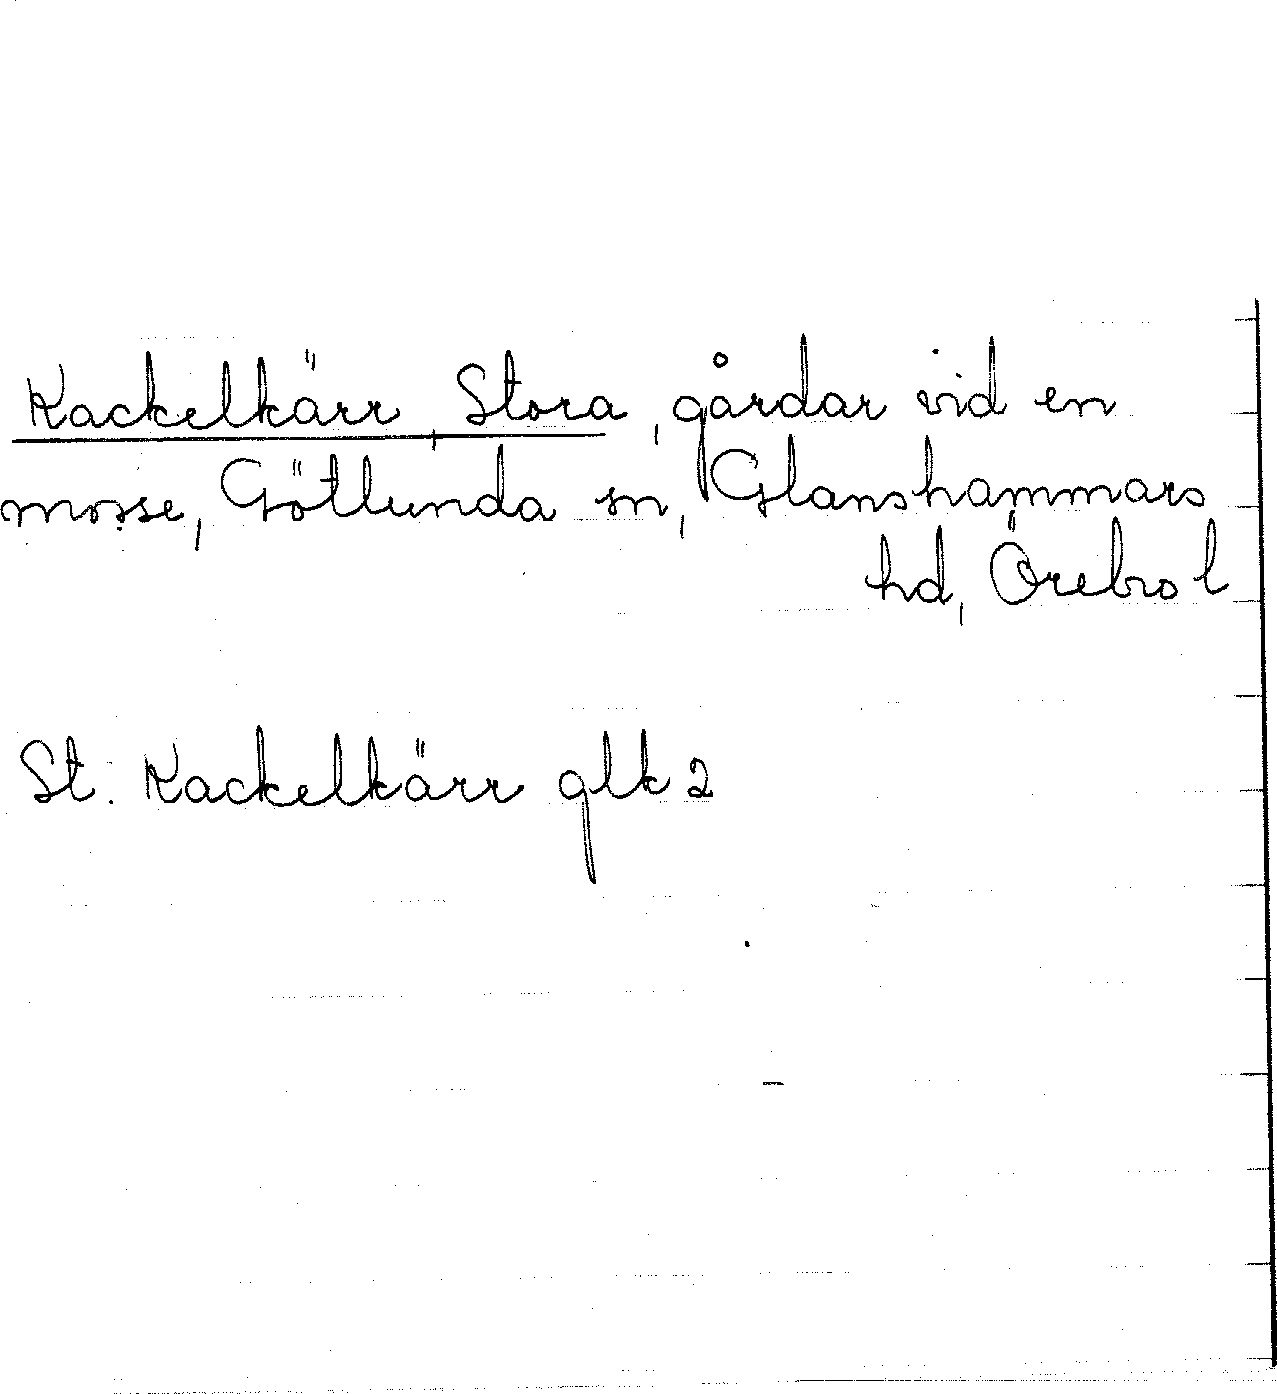 Kackelkärr, Stora, gårdar vid en
mosse, Götlunda sn, Glanshammars
hd, Örebro l
St. Kackelkärr glk 2